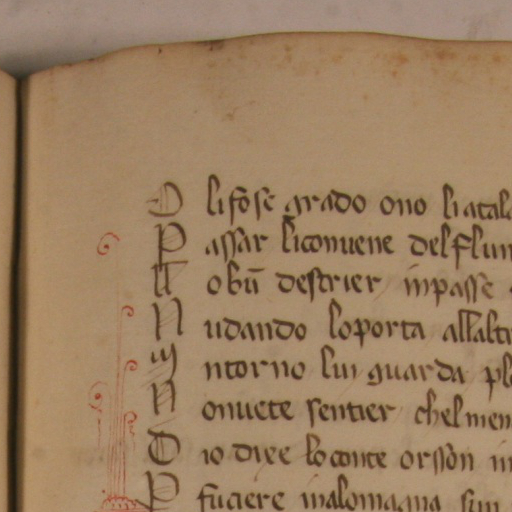 O li fose grado ono li atala
P assar li conuene del flun
ll o bū destrier inpasse
N udando lo porta allalt
in ntorno lui guarda pl
N on uete sentier chel men
D io dixe lo conte orsson in
P fuciere inalomagna sun